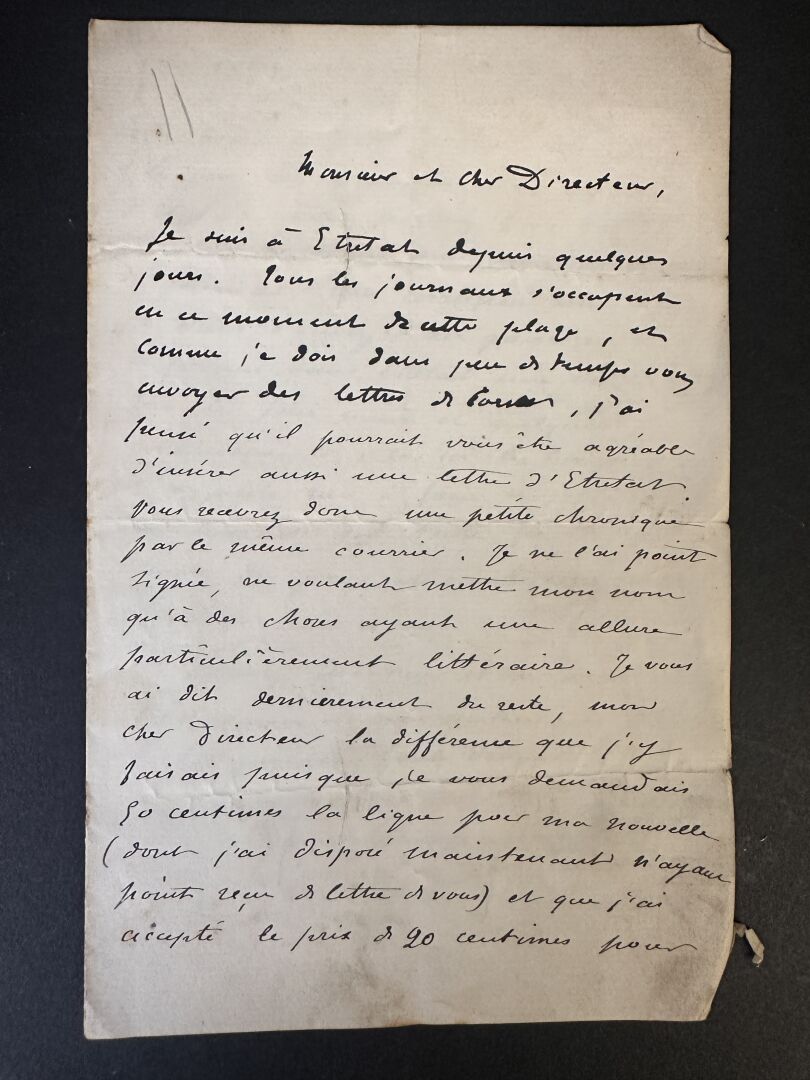 Monsieur et cher Directeur,
Je suis à Etretat depuis quelques
jours. Tous les journaux s'occupent
en ce moment de cette plage, et
comme je dois dans peu de temps vous
envoyer des lettres de Corse, j'ai
pensé qu'il pourrait vous être agréable
d'insérer aussi une lettre d'Etretat.
Vous recevrez donc une petite chronique
par le même courrier. Je ne l'ai point
signée, ne voulant mettre mon nom
qu'à des choses ayant une allure
particulièrement littéraire. Je vous
ai dit dernièrement du reste, mon
cher Directeur la différence que j'y
faisais puisque je vous demandais
50 centimes la ligne pour ma nouvelle
(dont j'ai disposé maintenant n'ayant
point reçu de lettre de vous) et que j'ai
accepté le prix de 20 centimes pour